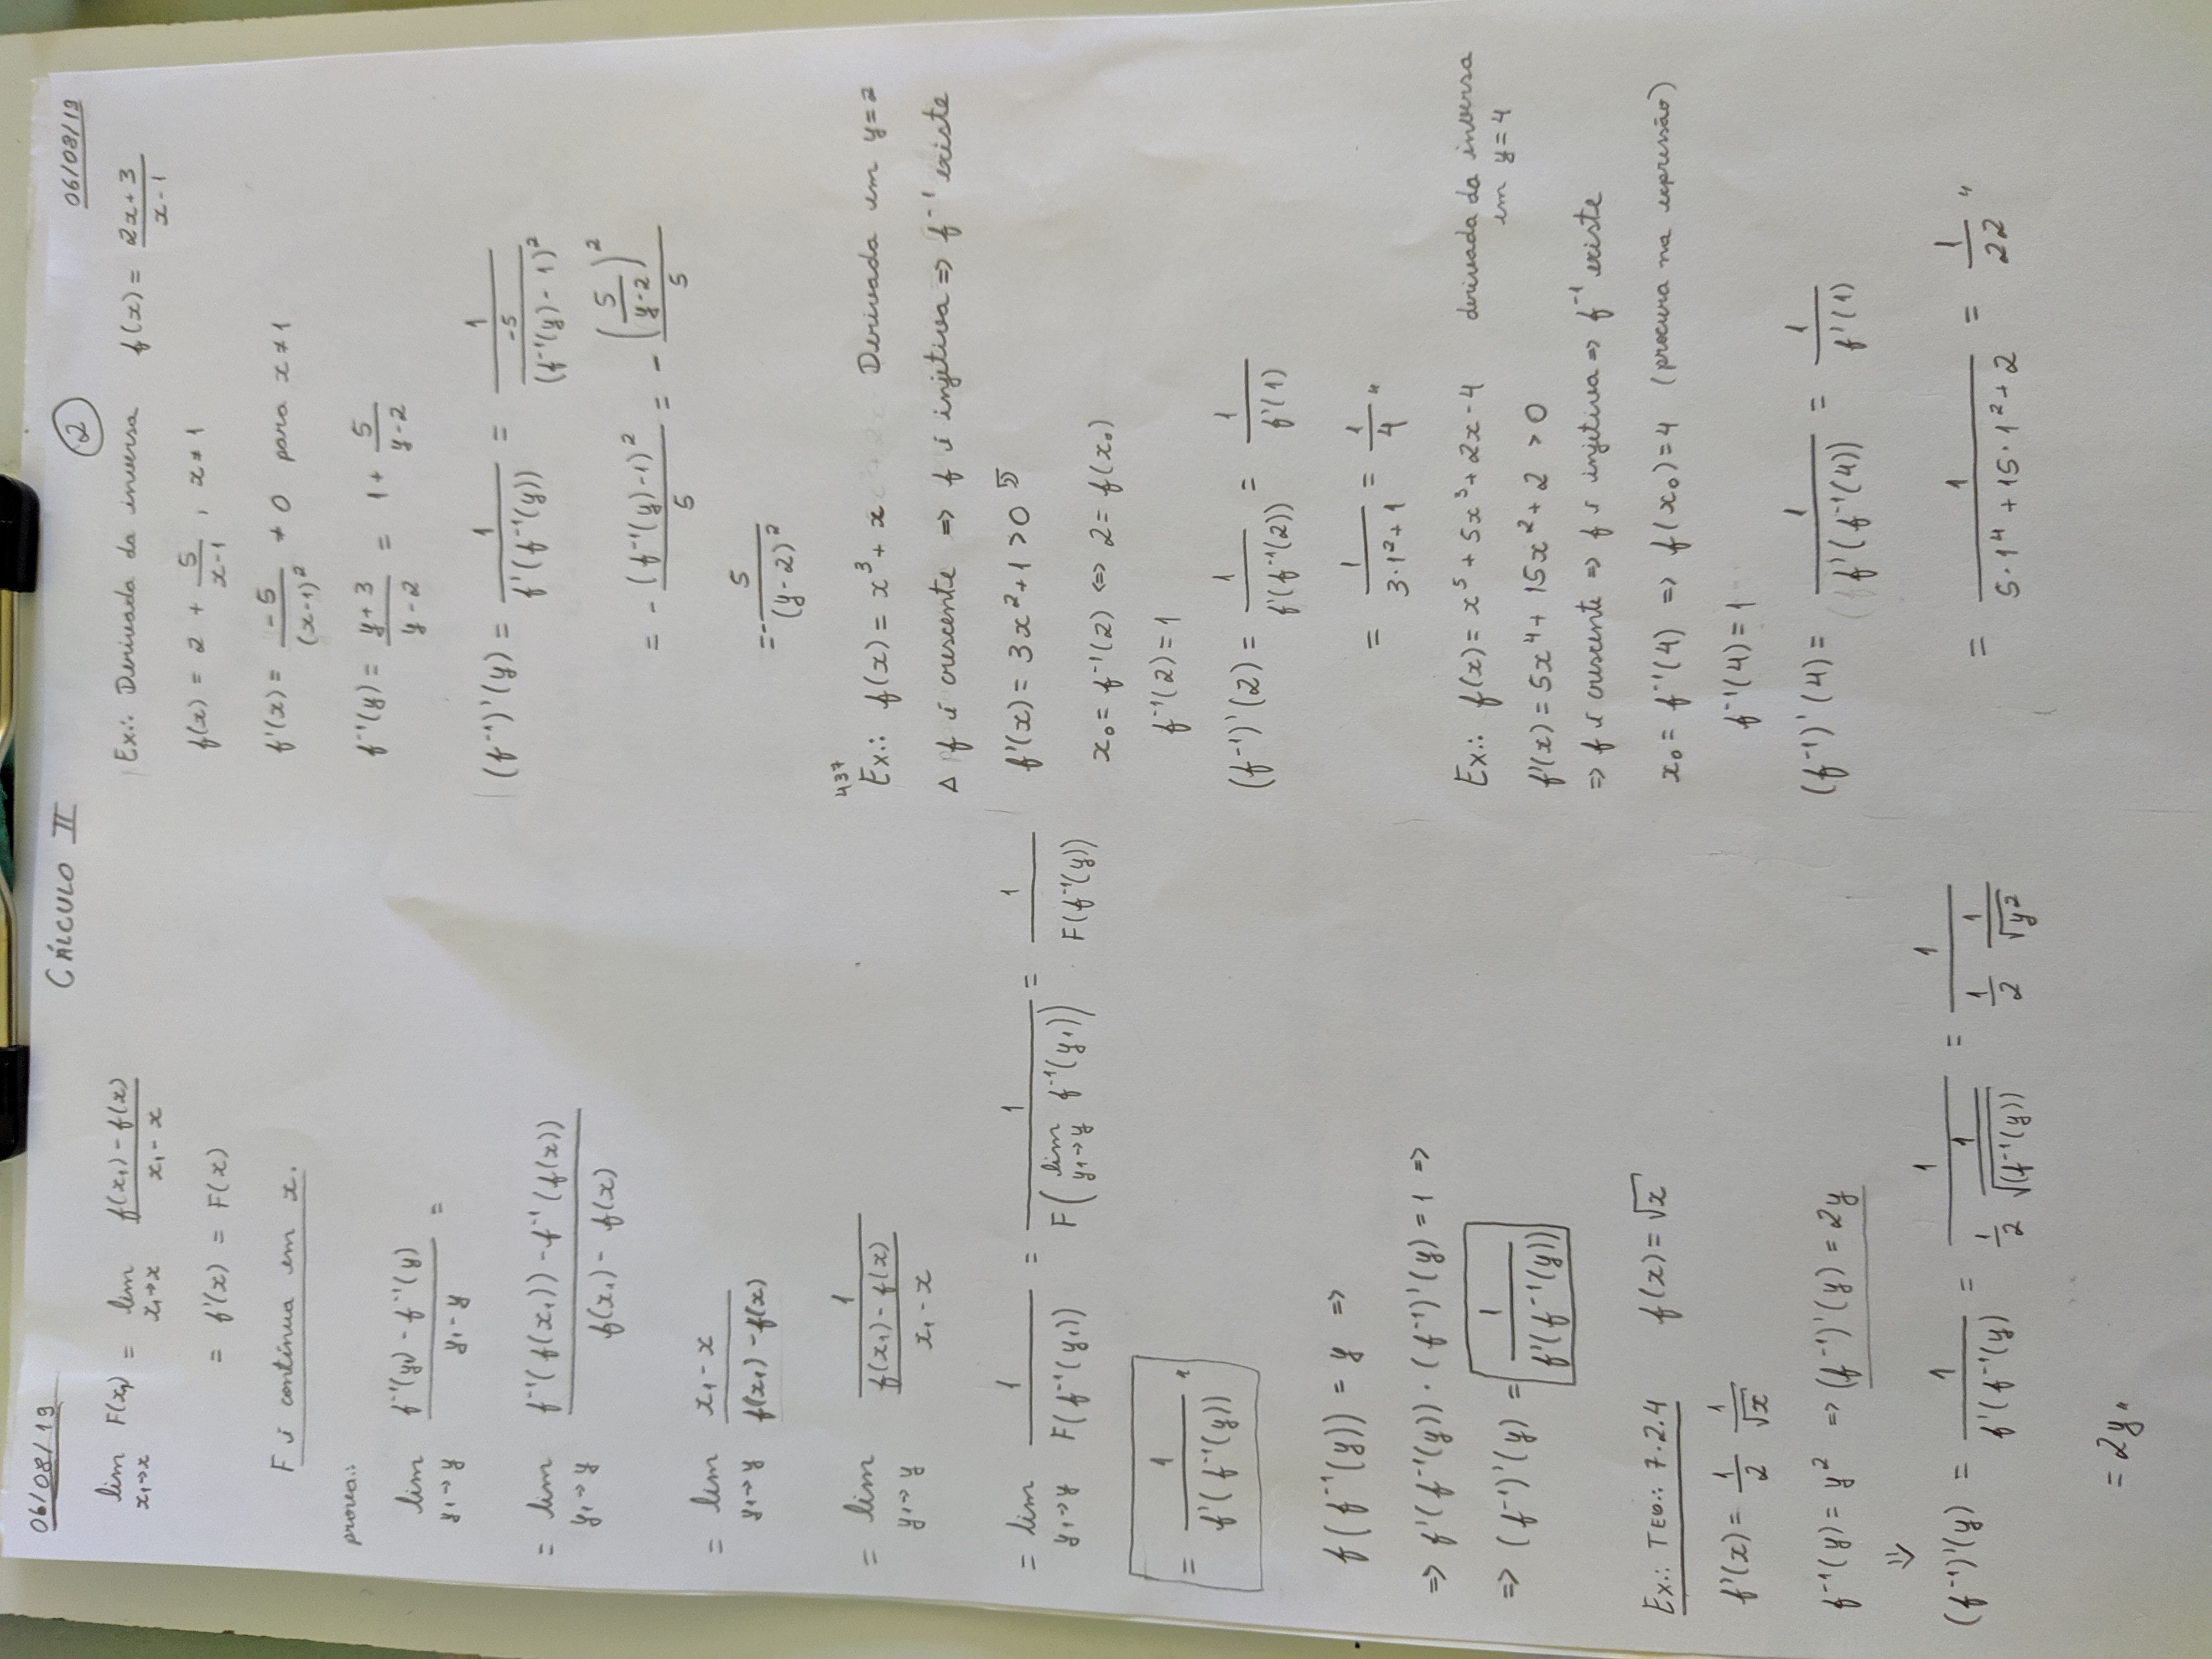 06/08/19
CÁLCULO II
2
06/08/19
lim x₁→x F(x₁) = lim x₁→x (f(x₁) - f(x))/(x₁ - x)
= f'(x) = F(x)
F é contínua em x.
prova∴
lim y₁→y (f⁻¹(y₁) - f⁻¹(y))/(y₁ - y) =
= lim y₁→y (f⁻¹(f(x₁)) - f⁻¹(f(x)))/(f(x₁) - f(x))
= lim y₁→y (x₁ - x)/(f(x₁) - f(x))
= lim y₁→y 1/((f(x₁) - f(x))/(x₁ - x))
= lim y₁→y 1/F(f⁻¹(y₁)) = 1/F(lim y₁→y f⁻¹(y₁)) = 1/F(f⁻¹(y))
= 1/f'(f⁻¹(y)) "
f(f⁻¹(y)) = y =>
=> f'(f⁻¹(y)) · (f⁻¹)'(y) = 1 =>
=> (f⁻¹)'(y) = 1/f'(f⁻¹(y))
Ex∴ TEO∴ 7.2.4 f(x) = √x
f'(x) = 1/2 1/√x
f⁻¹(y) = y² => (f⁻¹)'(y) = 2y
⇓
(f⁻¹)'(y) = 1/f'(f⁻¹(y) = 1/(1/2 1/√(f⁻¹(y))) = 1/(1/2 1/√y²)
= 2y "
Ex∴ Derivada da inversa f(x) = (2x+3)/(x-1)
f(x) = 2 + 5/(x-1) , x ≠ 1
f'(x) = -5/(x-1)² ≠ 0 para x ≠ 1
f⁻¹(y) = (y+3)/(y-2) = 1 + 5/(y-2)
(f⁻¹)'(y) = 1/f'(f⁻¹(y)) = 1/(-5/(f⁻¹(y) - 1)²)
= - (f⁻¹(y) - 1)²/5 = - (5/(y-2))²/5
= - 5/(y-2)²
437
Ex∴ f(x) = x³ + x Derivada em y=2
Δ f é crescente => f é injetiva => f⁻¹ existe
f'(x) = 3x² + 1 > 0
x₀ = f⁻¹(2) <=> 2 = f(x₀)
f⁻¹(2) = 1
(f⁻¹)'(2) = 1/f'(f⁻¹(2)) = 1/f'(1)
= 1/(3·1² + 1) = 1/4 "
Ex∴ f(x) = x⁵ + 5x³ + 2x - 4 derivada da inversa
em y=4
f'(x) = 5x⁴ + 15x² + 2 > 0
=> f é crescente => f é injetiva => f⁻¹ existe
x₀ = f⁻¹(4) => f(x₀) = 4 (procura na expressão)
f⁻¹(4) = 1
(f⁻¹)'(4) = 1/f'(f⁻¹(4)) = 1/f'(1)
= 1/(5·1⁴ + 15·1² + 2) = 1/22 "